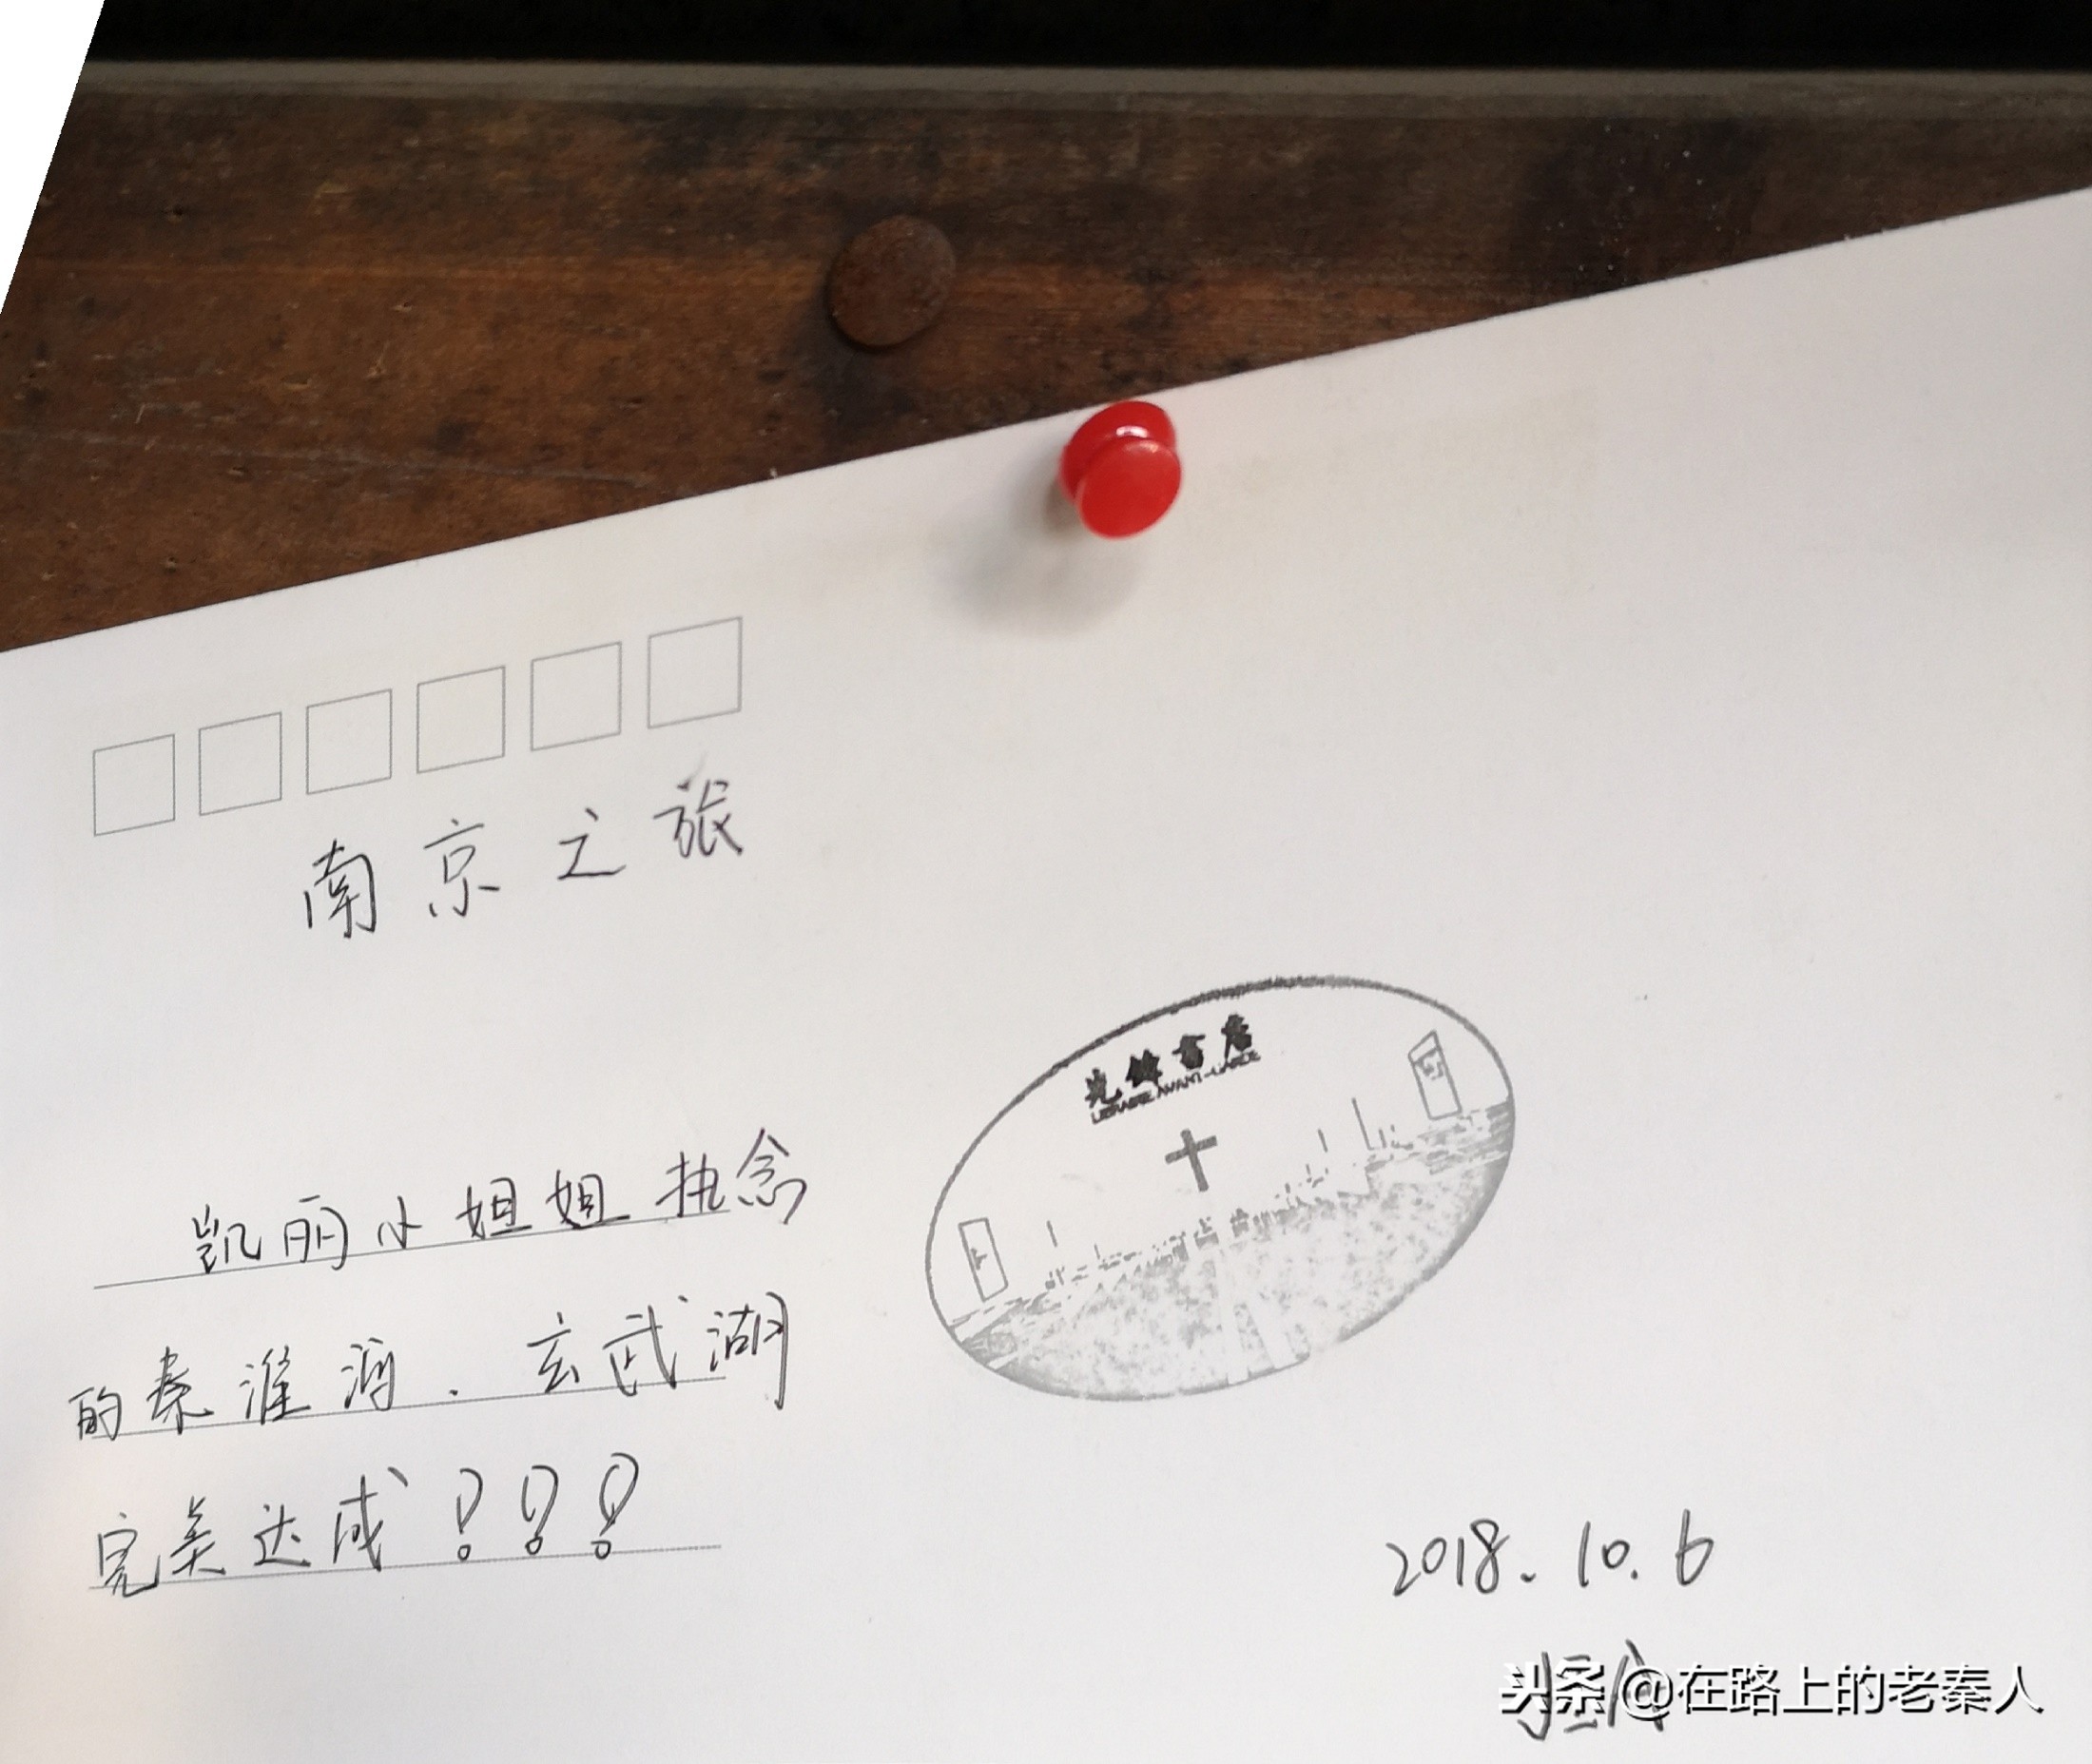 南京之旅
先锋书店
LIBRAIRIE AVANT-GARDE
凯丽小姐姐执念
的秦淮河.玄武湖
完美达成！！！
2018.10.6
头条@在路上的老秦人